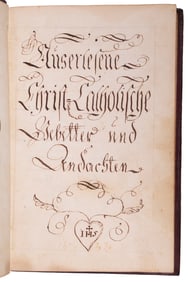 Außerlesene
Christ-Catholische
Gebetter und
Andachten
IHS